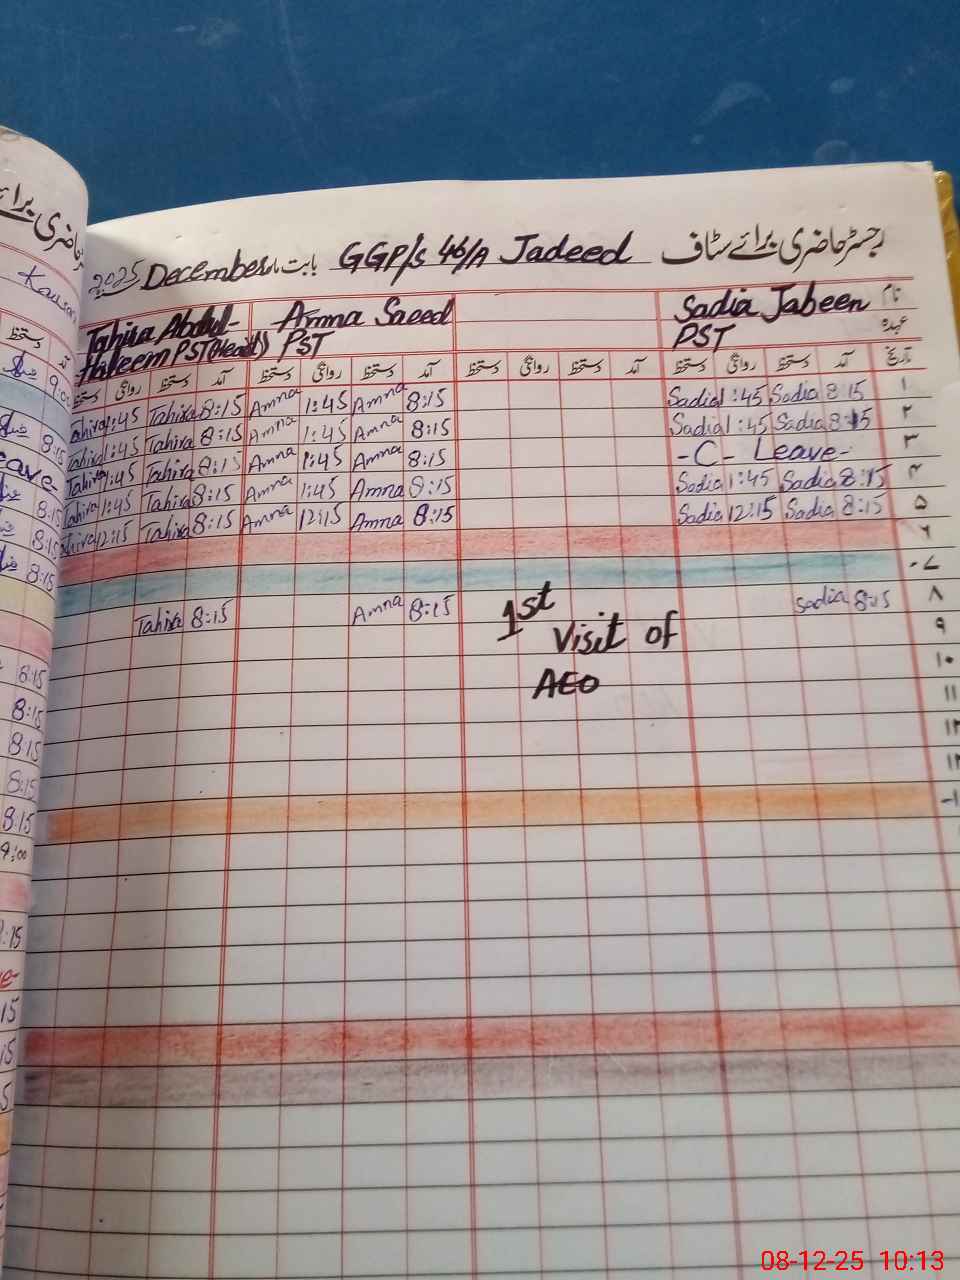 رجسٹر حاضری برائے سٹاف GGP/s 46/A Jadeed بابت ماہ December 2025
نام Sadia Jabeen Amna Saeed Tahira Abdul-
عہدہ PST PST Haleem PST (Head)
تاریخ آمد دستخط روانگی دستخط آمد دستخط روانگی دستخط آمد دستخط روانگی دستخط آمد دستخط روانگی دستخط
۱ 8:15 Sadia 1:45 Sadia 8:15 Amna 1:45 Amna 8:15 Tahira 1:45 Tahira
۲ 8:15 Sadia 1:45 Sadia 8:15 Amna 1:45 Amna 8:15 Tahira 1:45 Tahira
۳ -C- Leave- 8:15 Amna 1:45 Amna 8:15 Tahira 1:45 Tahira
۴ 8:15 Sadia 1:45 Sadia 8:15 Amna 1:45 Amna 8:15 Tahira 1:45 Tahira
۵ 8:15 Sadia 12:15 Sadia 8:15 Amna 12:15 Amna 8:15 Tahira 12:15 Tahira
۶
۷
۸ 8:15 Sadia 8:15 Amna 8:15 Tahira
1st
Visit of
AEO
۹
۱۰
۱۱
۱۲
۱۳
حاضری برائے
Kausar
دستخط
9:00
8:15
eave
8:15
8:15
8:15
8:15
8:15
8:15
8:15
8:15
9:00
:15
e-
15
15
5
08-12-25 10:13